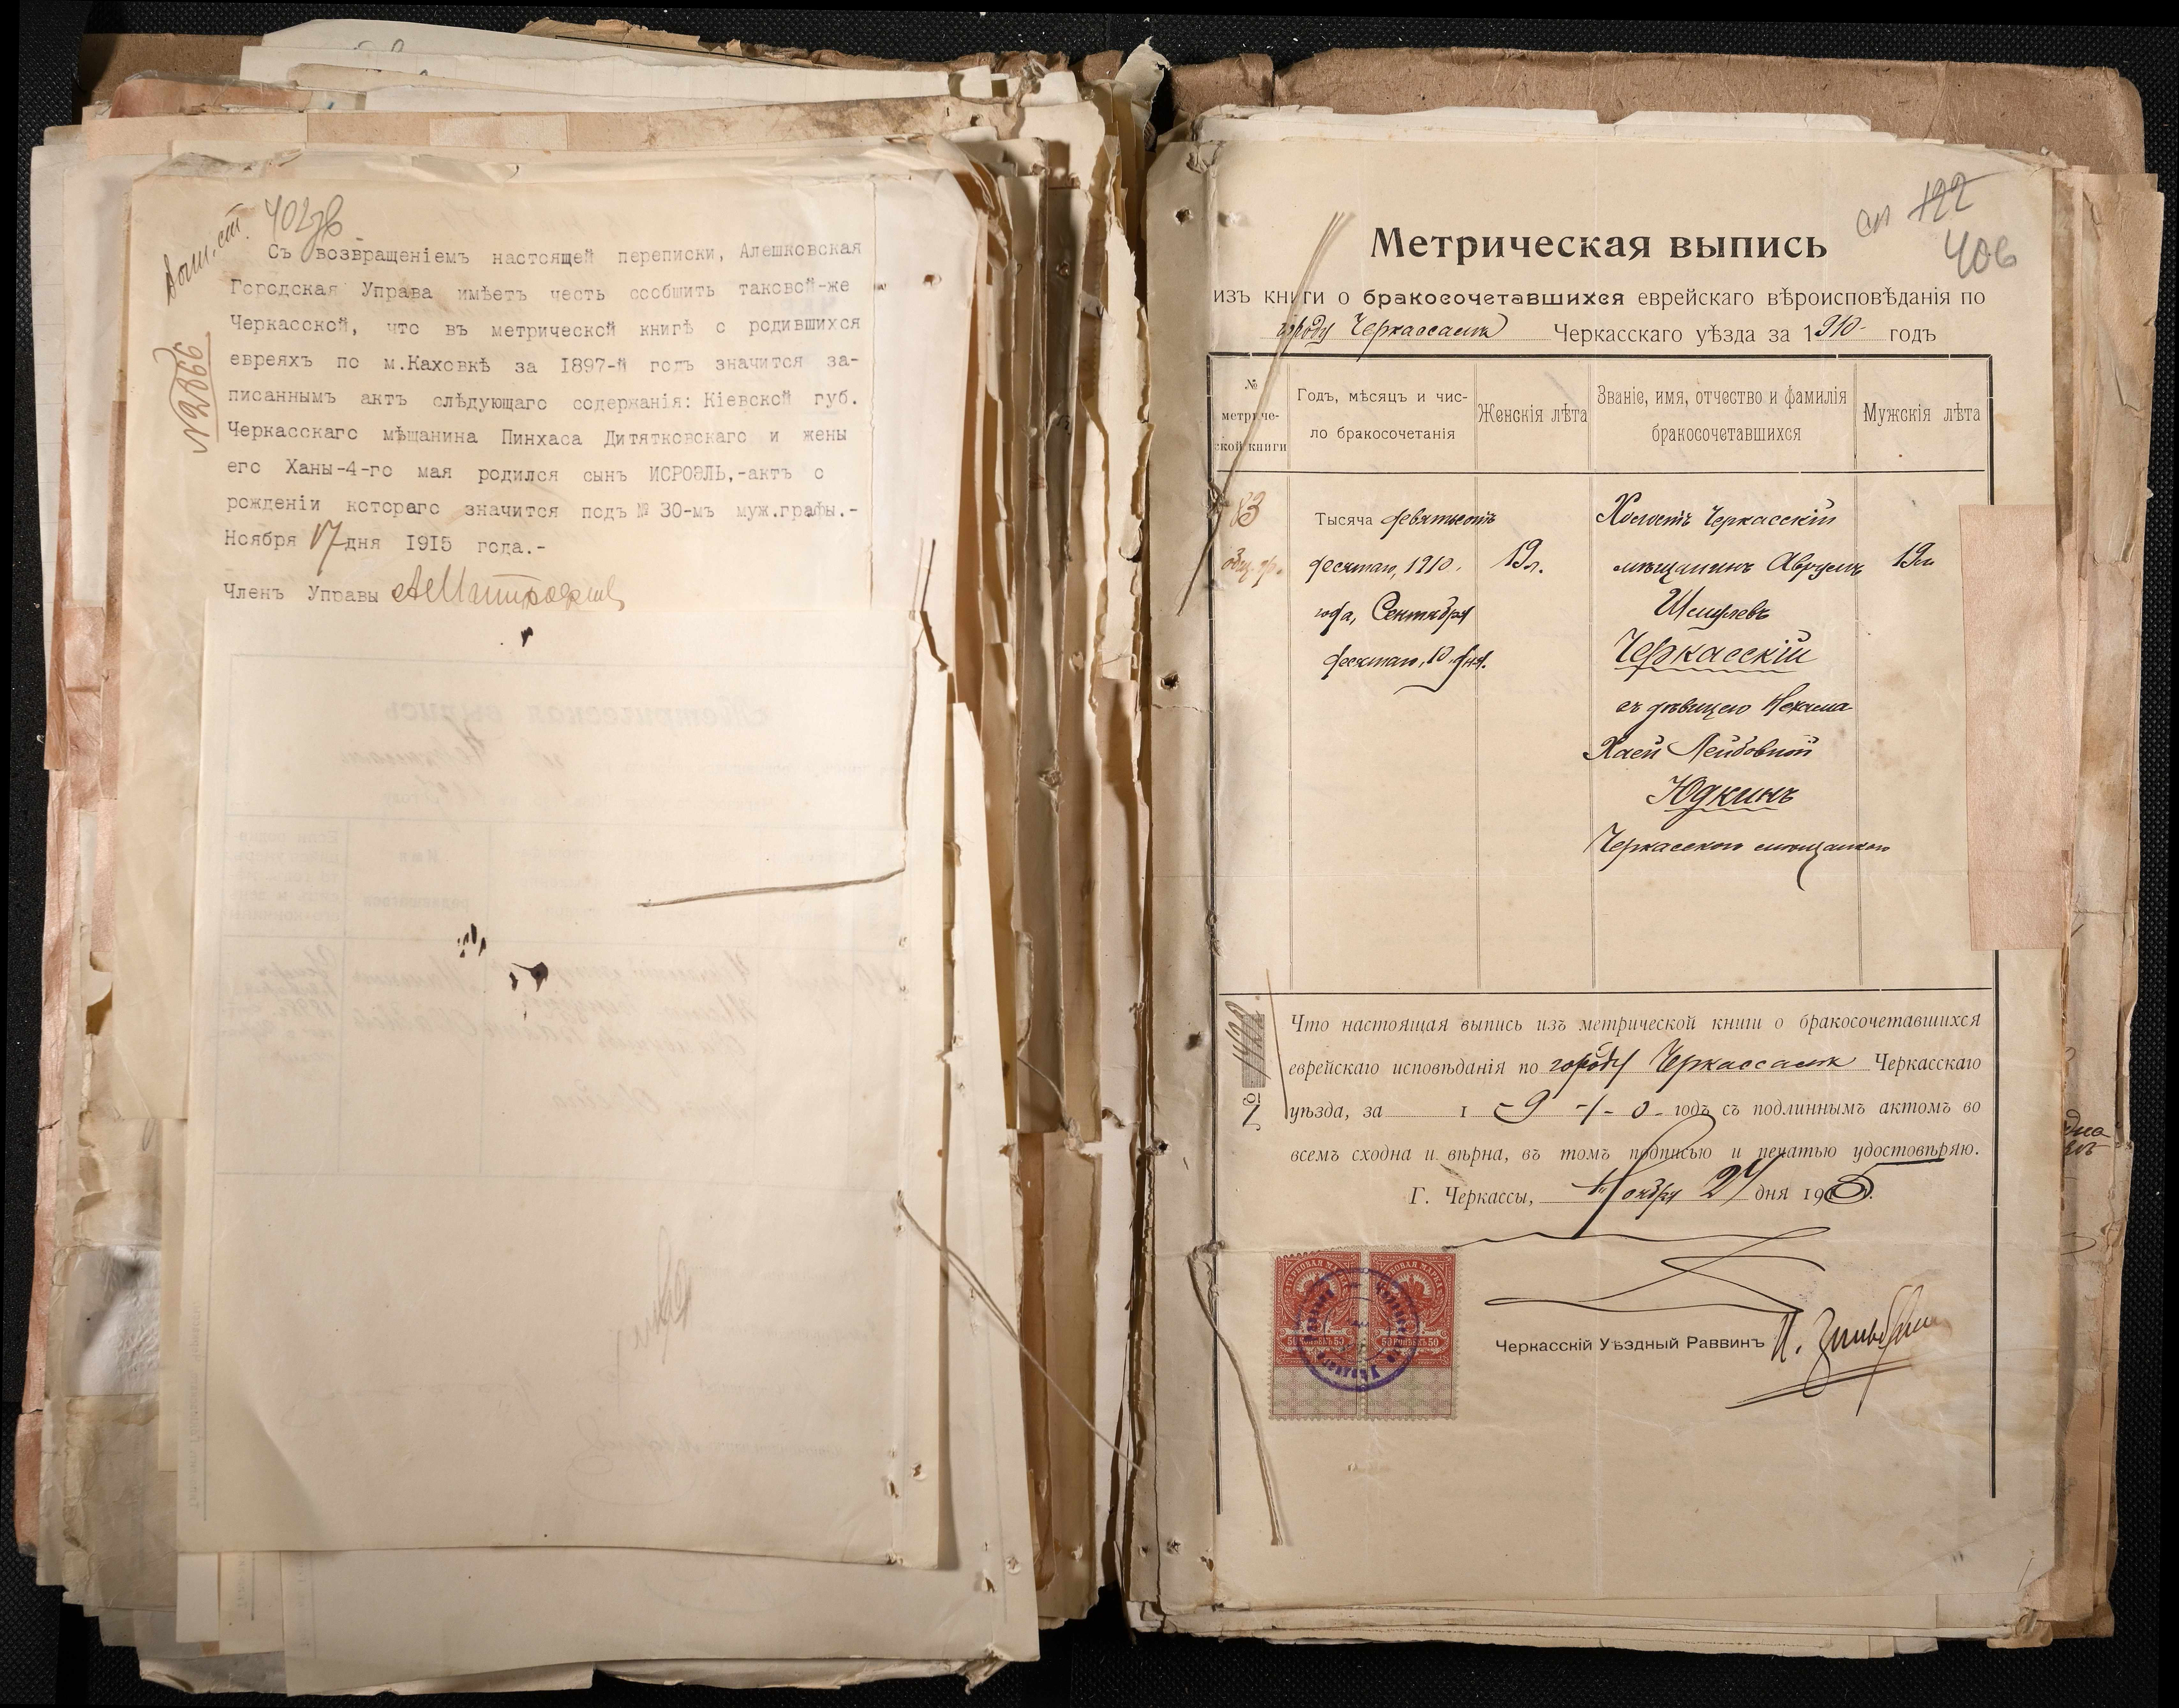 402 об
№ 2866
Съ возвращеніемъ настоящей переписки, Алешковская
Городская Управа имѣетъ честь сообщить таковой-же
Черкасской, что въ метрической книгѣ о родившихся
евреяхъ по м.Каховкѣ за 1897-й годъ значится за-
писаннымъ актъ слѣдующаго содержанія: Кіевской губ.
Черкасскаго мѣщанина Пинхаса Дитятковскаго и жены
его Ханы-4-го мая родился сынъ ИСРОЭЛЬ,-актъ о
рожденіи котораго значится подъ № 30-мъ муж.графы.-
Ноября 17 дня 1915 года.-
Членъ Управы
122
406
Метрическая выпись
изъ книги о бракосочетавшихся еврейскаго вѣроисповѣданія по
городу Черкассамъ Черкасскаго уѣзда за 1910 годъ
№ метриче-ской книги
Годъ, мѣсяцъ и чис-ло бракосочетанія
Женскія лѣта
Званіе, имя, отчество и фамилія бракосочетавшихся
Мужскія лѣта
83
Тысяча девятьсотъ
десятаго, 1910.
года, Сентября
десятаго, 10 дня.
19 л.
Холостъ Черкасскій
мѣщанинъ Аврумъ
Шмулевъ
Черкасскій
съ дѣвицею Нехама
Хаей Лейбовной
Юдкинъ
Черкасскою мѣщанкою
19 л.
№ 1422.
Что настоящая выпись изъ метрической книги о бракосочетавшихся
еврейскаго исповѣданія по городу Черкассамъ Черкасскаго
уѣзда, за 1 9 1 0 годъ съ подлиннымъ актомъ во
всемъ сходна и вѣрна, въ томъ подписью и печатью удостовѣряю.
Г. Черкассы, Ноября 24 дня 1915.
ГЕРБОВАЯ МАРКА
50 КОПѢЕКЪ 50
ГЕРБОВАЯ МАРКА
50 КОПѢЕКЪ 50
Черкасскій Уѣздный Раввинъ